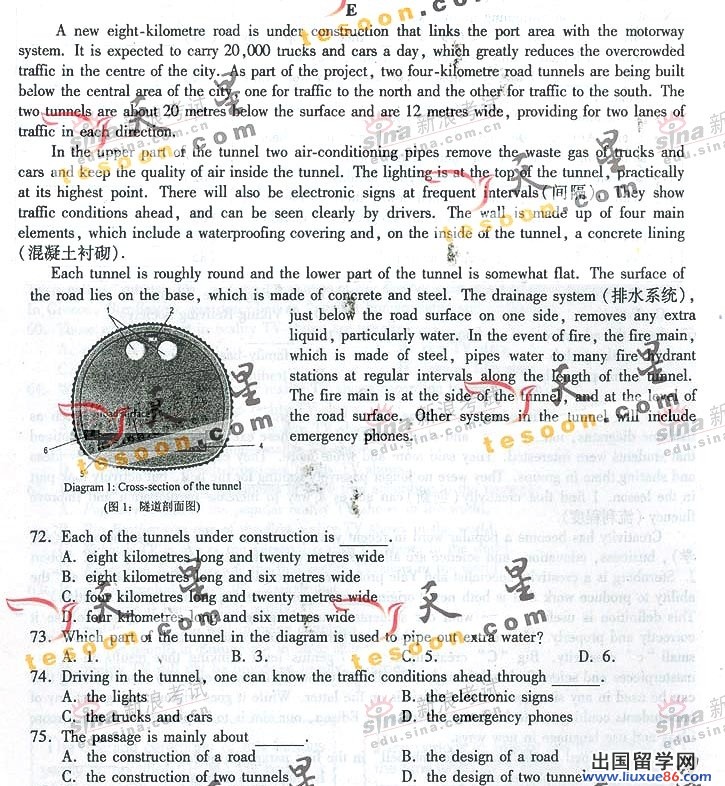 E
A new eight-kilometre road is under construction that links the port area with the motorway
system. It is expected to carry 20,000 trucks and cars a day, which greatly reduces the overcrowded
traffic in the centre of the city. As part of the project, two four-kilometre road tunnels are being built
below the central area of the city, one for traffic to the north and the other for traffic to the south. The
two tunnels are about 20 metres below the surface and are 12 metres wide, providing for two lanes of
traffic in each direction.
In the upper part of the tunnel two air-conditioning pipes remove the waste gas of trucks and
cars and keep the quality of air inside the tunnel. The lighting is at the top of the tunnel, practically
at its highest point. There will also be electronic signs at frequent intervals(间隔). They show
traffic conditions ahead, and can be seen clearly by drivers. The wall is made up of four main
elements, which include a waterproofing covering and, on the inside of the tunnel, a concrete lining
(混凝土衬砌).
Each tunnel is roughly round and the lower part of the tunnel is somewhat flat. The surface of
the road lies on the base, which is made of concrete and steel. The drainage system (排水系统),
just below the road surface on one side, removes any extra
liquid, particularly water. In the event of fire, the fire main,
which is made of steel, pipes water to many fire hydrant
stations at regular intervals along the length of the tunnel.
The fire main is at the side of the tunnel, and at the level of
the road surface. Other systems in the tunnel will include
emergency phones.
1 2
6 4
5
Diagram 1: Cross-section of the tunnel
(图 1: 隧道剖面图)
72. Each of the tunnels under construction is ______.
A. eight kilometres long and twenty metres wide
B. eight kilometres long and six metres wide
C. four kilometres long and twenty metres wide
D. four kilometres long and six metres wide
73. Which part of the tunnel in the diagram is used to pipe out extra water?
A. 1. B. 3. C. 5. D. 6.
74. Driving in the tunnel, one can know the traffic conditions ahead through ______.
A. the lights B. the electronic signs
C. the trucks and cars D. the emergency phones
75. The passage is mainly about ______.
A. the construction of a road B. the design of a road
C. the construction of two tunnels D. the design of two tunnels
天星
tesoon.com
sina 新浪考试
edu.sina.com.cn
出国留学网
www.liuxue86.com